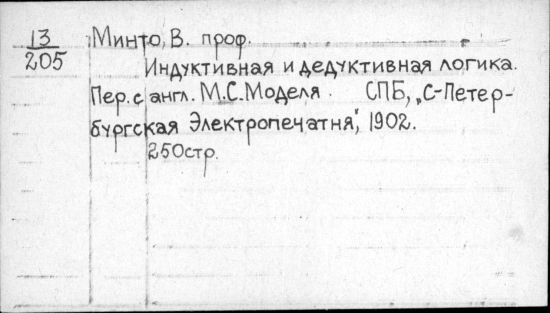 13 Минто, В. проф.
205 Индуктивная и дедуктивная логика.
Пер. с англ. М.С. Моделя. СПБ, „С-Петер-
бургская Электропечатня", 1902.
250стр.